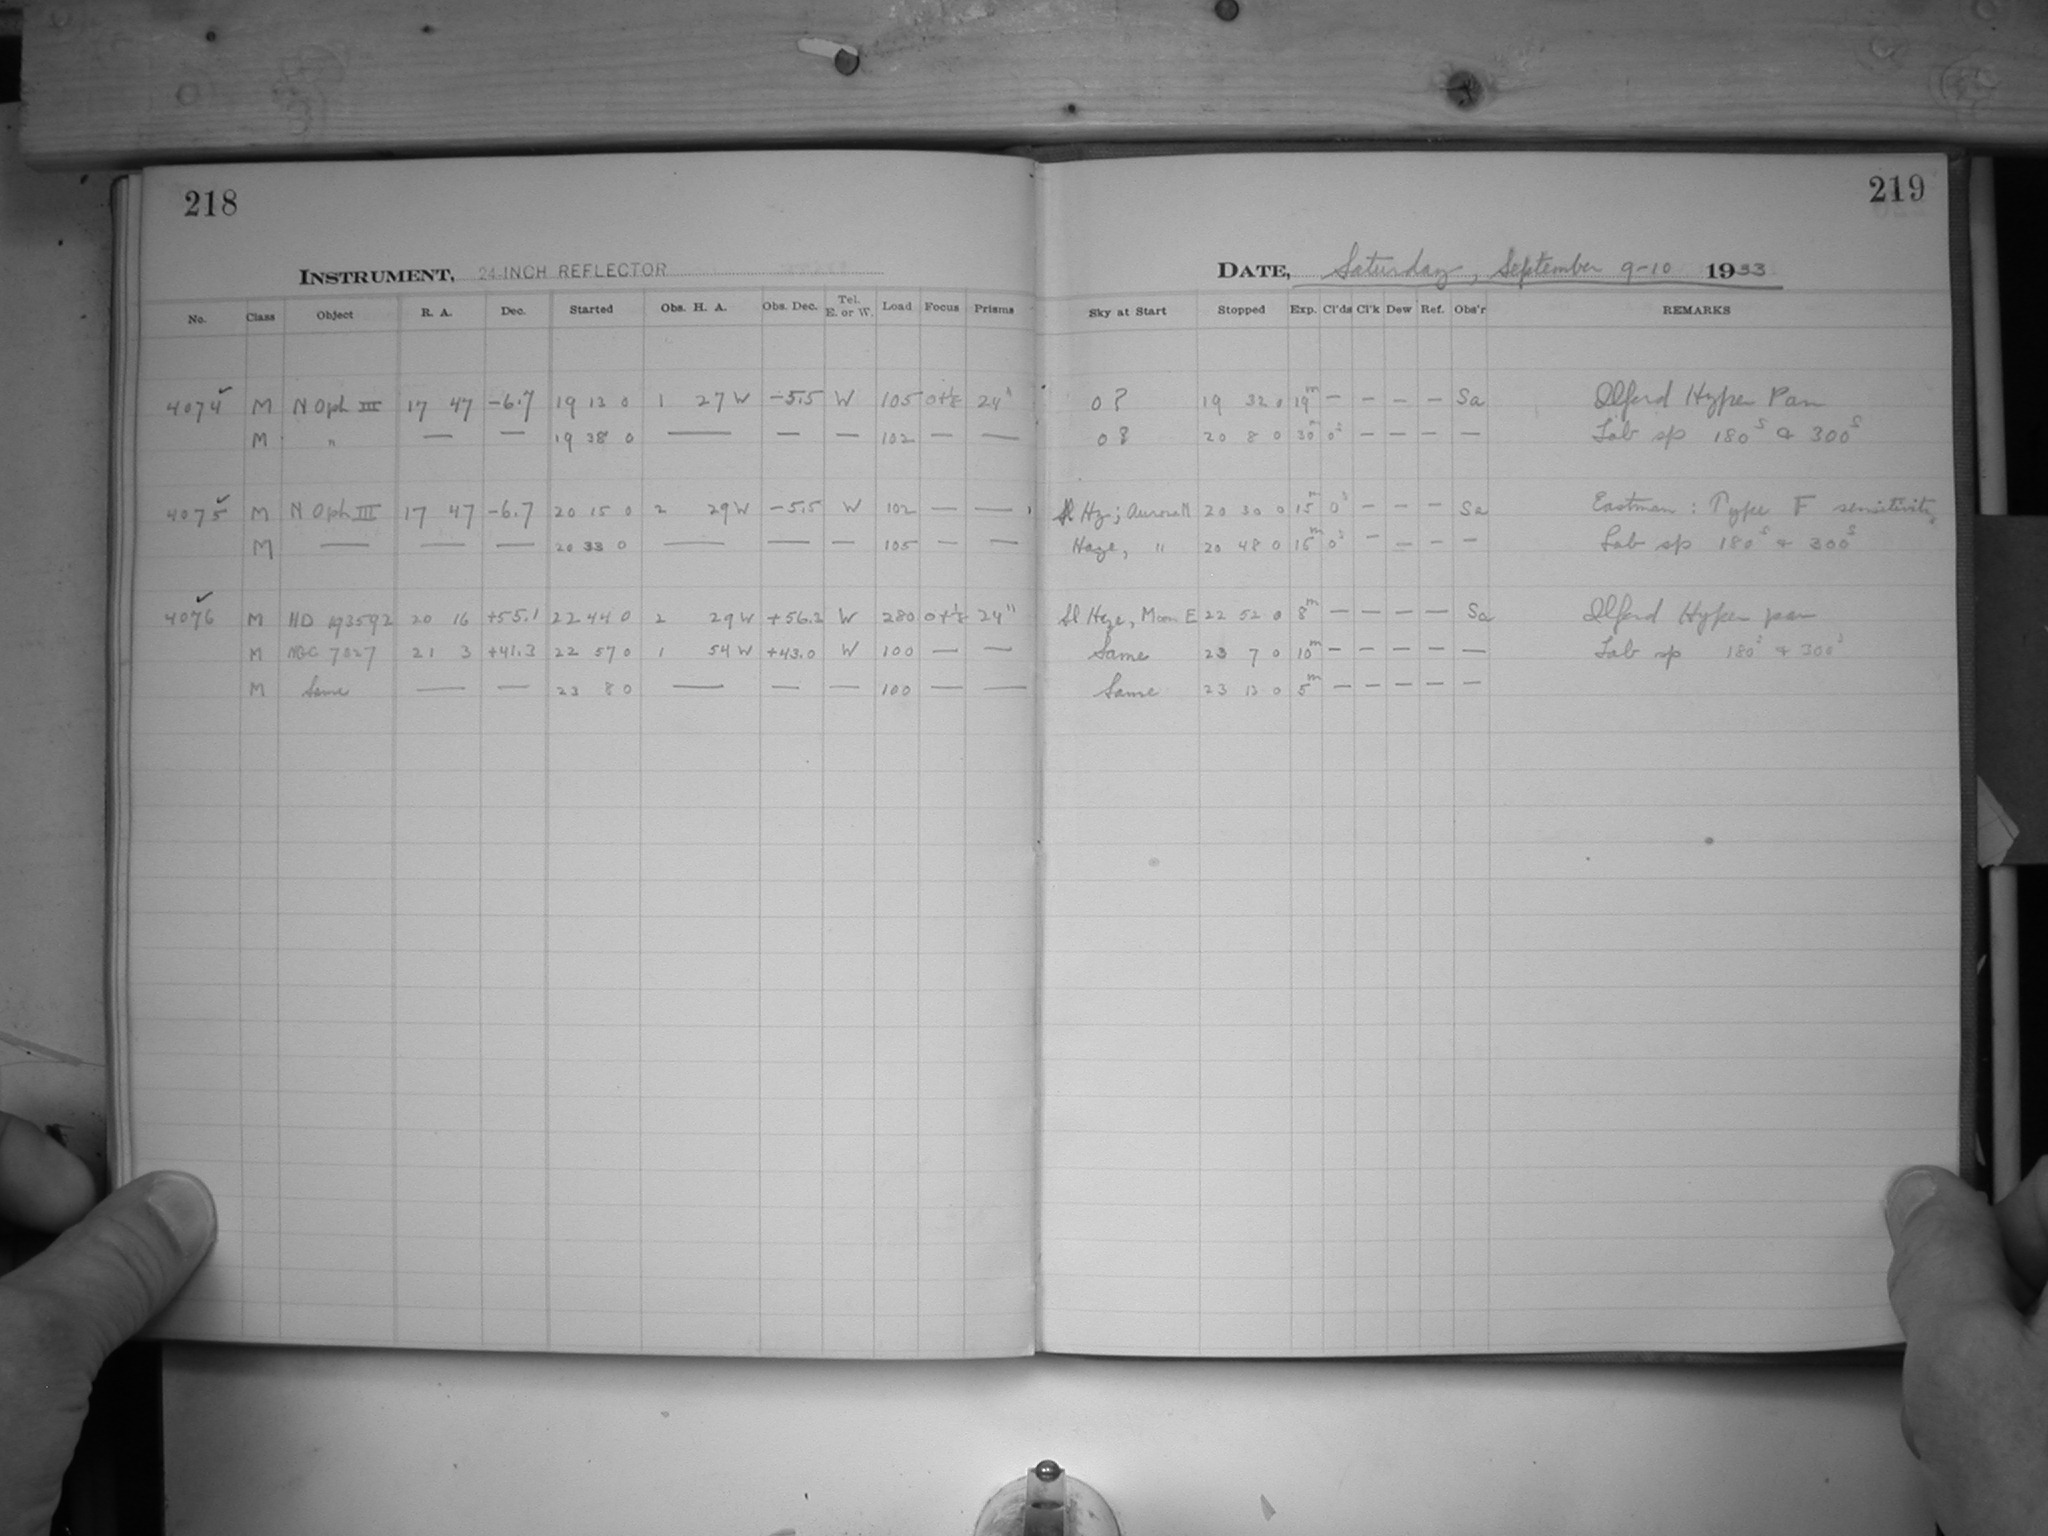 218
INSTRUMENT, 24-INCH REFLECTOR
No. Class Object R. A. Dec. Started Obs. H. A. Obs. Dec. Tel. E. or W. Load Focus Prisms
4074 ✓ M N Oph III 17 47 -6.7 19 13 0 1 27 W -5.5 W 105 0+⅛ 24"
M " — — 19 38 0 — — — 102 — —
4075 ✓ M N Oph III 17 47 -6.7 20 15 0 2 29 W -5.5 W 102 — —
M — — — 20 33 0 — — — 105 — —
4076 ✓ M HD 193592 20 16 +55.1 22 44 0 2 29 W +56.2 W 280 0+⅛ 24"
M NGC 7027 21 3 +41.3 22 57 0 1 54 W +43.0 W 100 — —
M Same — — 23 8 0 — — — 100 — —
219
DATE, Saturday, September 9-10 1933
Sky at Start Stopped Exp. Cl'ds Cl'k Dew Ref. Obs'r REMARKS
0? 19 32 0 19m — — — — Sa Ilford Hyper Pan
0? 20 8 0 30m 0s — — — — Lab sp 180s & 300s
Sl Hz; Aurora N 20 30 0 15m 0s — — — Sa Eastman: Type F sensitivity
Haze, " 20 48 0 15m 0s — — — — Lab sp 180s & 300s
Sl Haze, Moon E 22 52 0 8m — — — — Sa Ilford Hyper pan
Same 23 7 0 10m — — — — — Lab sp 180s & 300s
Same 23 13 0 5m — — — — —